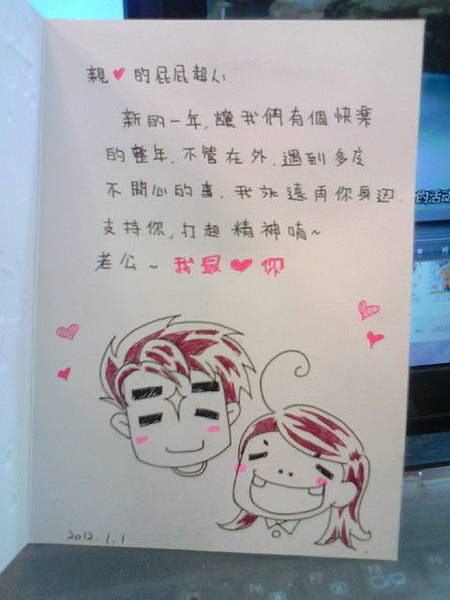 親♥的屁屁超人:
新的一年,讓我們有個快樂
的整年,不管在外,遇到多麼
不開心的事,我永遠再你身边
支持你,打起精神唷~
老公~我最♥你
2012.1.1
的活动
F6
F7
F8